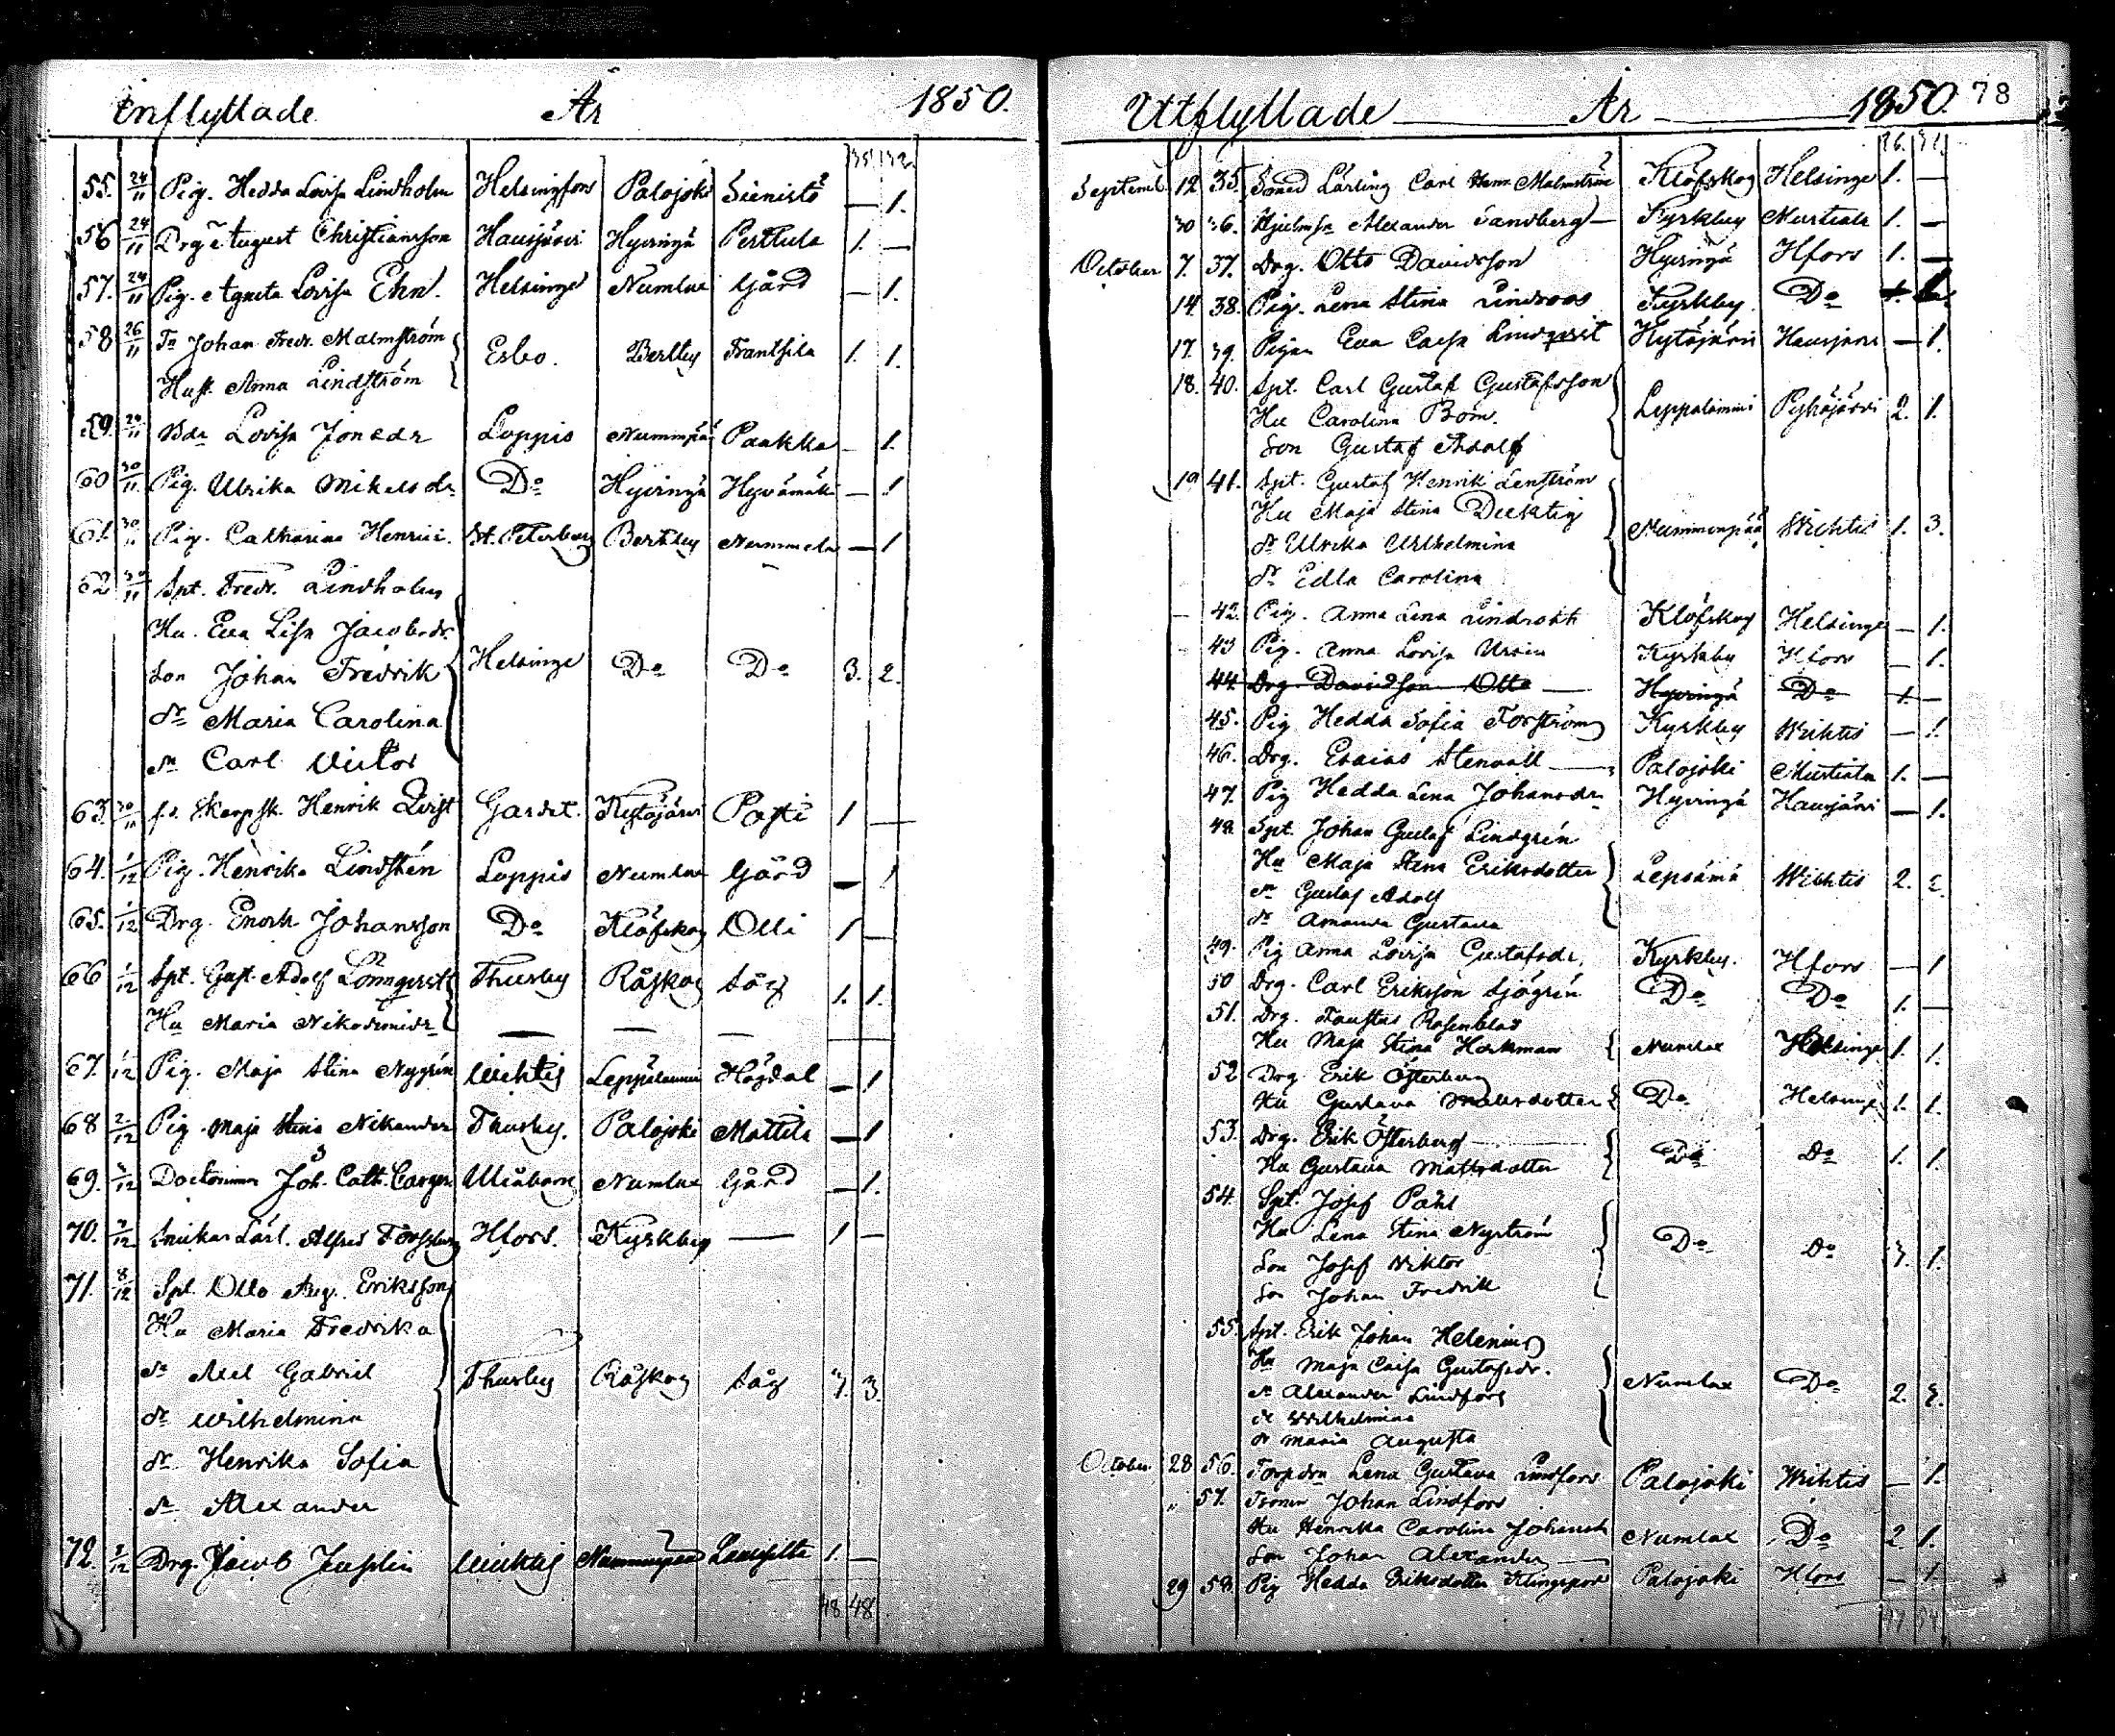 Inflyttade År 1850.
35. 32.
55. 24/11 Pig. Hedda Lovisa Lindholm Helsingfors Palojoki Sienistö — 1.
56 24/11 Drg August Christiansson Hausjärvi Hyvinge Perttula 1. —
57. 24/11 Pig. Agneta Lovisa Ehn. Helsinge Numlax Gård — 1.
58 26/11 Johan Fredr. Malmström Esbo. Bertby Frantsila 1. 1.
Hust. Anna Lindström
59. 29/11 Bdr Lovisa Jonsdr Loppis Nummenpää Paakka — 1.
60 30/11 Pig. Ulrika Mikelsdr Do Hyvinge Hyvämäki — 1
61. 30/11 Pig. Catharina Henrici. St. Peterburg Bertby Nummela — 1
62 30/11 Spt. Fredr. Lindholm
Hu. Eva Lisa Jacobsdr.
Son Johan Fredrik Helsinge Do Do 3. 2.
Dr Maria Carolina
Sn Carl Victor
63. 30/11 f.d. Skarpsk. Henrik Qvist Garnt. Kytäjärvi Pasti 1 —
64. 1/12 Pig. Henrika Lindstén Loppis Numlax Gård — 1
65. 1/12 Drg. Enoch Johansson Do Klöfskog Olli 1 —
66 1/12 Spt. Gust. Adolf Lönnqvist Thusby Råskog Såg 1. 1.
Hu Maria Nikodemidr — — —
67. 1/12 Pig. Maja Stina Nygrén Wichtis Leppälammi Högdal — 1
68 2/12 Pig. Maja Stina Nikander Thusby. Palojoki Mattila — 1
69. 2/12 Doctorinnan Joh. Cath. Uleåborg Numlax Gård — 1.
70. 7/12 Snickar Lärl. Alfred Forssberg Hfors. Kyrkby — 1 —
71. 8/12 Spt. Otto Aug. Eriksson
Hu Maria Fredrika
Sn Axel Gabriel Thusby Råskog Såg 3. 3.
Dr Wilhelmina
Dr Henrika Sofia
Sn Alexander
72. 9/12 Drg. Jacob Juslin Wichtis Nummenpää Lansila 1. —
48 48
Utflyttade År 1850. 78
26. 31.
Septemb. 12 35. Lärling Carl Henr. Malmström Klöfskog Helsinge 1. —
30 36. Alexander Sandberg — Kyrkby Mustiala 1. —
October 7. 37. Drg. Otto Davidsson Hyvinge Hfors 1. —
14 38. Pig. Lena Stina Lindroos Kyrkby. Do 1.
17. 39. Pigan Eva Caisa Lindqvist Kytäjärvi Hausjärvi — 1.
18. 40. Spt. Carl Gustaf Gustafsson
Hu Carolina Bom. Leppälammi Pyhäjärvi 2. 1.
Son Gustaf Adolf
19 41. Spt. Gustaf Henrik Lenström
Hu Maja Stina Ducktig Nummenpää Wichtis 1. 3.
Dr Ulrika Wilhelmina
Dr Edla Carolina
42. Pig. Anna Lena Lindroth Klöfskog Helsinge — 1.
43 Pig. Anna Lovisa Ursin Kyrkby Hfors — 1.
44. Drg. Davidsson Otto — Hyvinge Do 1. —
45. Pig Hedda Sofia Forström Kyrkby Wichtis — 1.
46. Drg. Esaias Stenvall — Palojoki Mustiala 1. —
47. Pig Hedda Lena Johansdr Hyvinge Hausjärvi — 1.
48 Spt. Johan Gustaf Lindgrén
Hu Maja Stina Eriksdotter Lepsämä Wichtis 2. 2.
Sn Gustaf Adolf
Dr Amanda Gustava
49. Pig Anna Lovisa Gustafsdr. Kyrkby. Hfors — 1
50 Drg. Carl Eriksson Sjögrén Do Do 1. —
51. Drg. Faustus Rosenblad
Hu Maja Stina Hackman Numlax Helsinge 1. 1.
52 Drg Erik Österberg
Hu Gustava Mattsdotter Do Helsinge 1. 1.
53. Drg. Erik Österberg
Hu Gustava Mattsdotter Do Do 1. 1.
54. Spt. Josef Pahl
Hu Lena Stina Nyström Do Do 3. 1.
Son Josef Viktor
Son Johan Fredrik
55. Spt. Erik Johan Helenius
Hu Maja Caisa Gustafsdr.
Sn Alexander Lindfors Numlax Do 2. 3.
Dr Wilhelmina
Dr Maria Augusta
October 28 56. Torpdrn Lena Gustava Lindfors Palojoki Wichtis — 1.
" 57. Johan Lindfors
Hu Henrika Carolina Johansd Numlax Do 2. 1.
Son Johan Alexander —
29 58. Pig Hedda Eriksdotter Klingspor Palojoki Hfors — 1